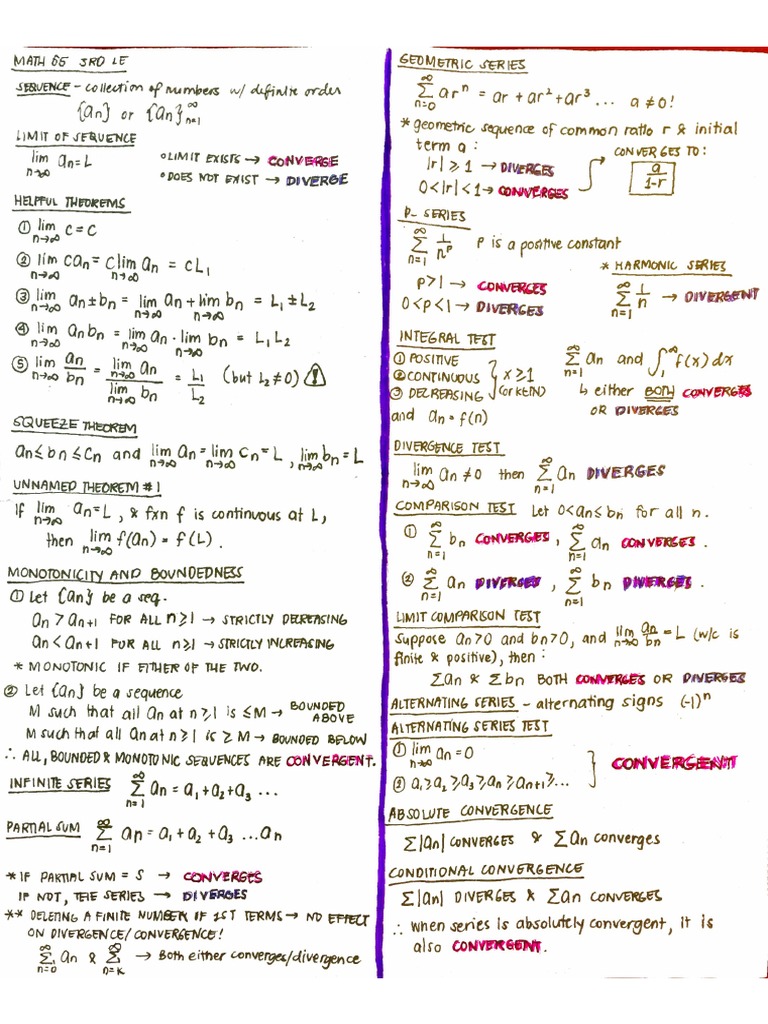 MATH 65 3RD LE
SEQUENCE - collection of numbers w/ definite order
{an} or {an}^∞_{n=1}
LIMIT OF SEQUENCE
lim_{n→∞} an = L
• LIMIT EXISTS → CONVERGE
• DOES NOT EXIST → DIVERGE
HELPFUL THEOREMS
① lim_{n→∞} c = c
② lim_{n→∞} can = c lim_{n→∞} an = cL₁
③ lim_{n→∞} an ± bn = lim_{n→∞} an + lim_{n→∞} bn = L₁ ± L₂
④ lim_{n→∞} an bn = lim_{n→∞} an · lim_{n→∞} bn = L₁L₂
⑤ lim_{n→∞} an/bn = lim_{n→∞} an / lim_{n→∞} bn = L₁/L₂ (but L₂ ≠ 0) ⚠
SQUEEZE THEOREM
an ≤ bn ≤ cn and lim_{n→∞} an = lim_{n→∞} cn = L, lim_{n→∞} bn = L
UNNAMED THEOREM #1
If lim_{n→∞} an = L, & fxn f is continuous at L,
then lim_{n→∞} f(an) = f(L).
MONOTONICITY AND BOUNDEDNESS
① Let {an} be a seq.
an > an+1 FOR ALL n ≥ 1 → STRICTLY DECREASING
an < an+1 FOR ALL n ≥ 1 → STRICTLY INCREASING
* MONOTONIC IF EITHER OF THE TWO.
② Let {an} be a sequence
M such that all an at n ≥ 1 is ≤ M → BOUNDED ABOVE
M such that all an at n ≥ 1 is ≥ M → BOUNDED BELOW
∴ ALL, BOUNDED & MONOTONIC SEQUENCES ARE CONVERGENT.
INFINITE SERIES ∑^∞_{n=1} an = a₁ + a₂ + a₃ ...
PARTIAL SUM ∑^∞_{n=1} an = a₁ + a₂ + a₃ ... an
* IF PARTIAL SUM = S → CONVERGES
IF NOT, THE SERIES → DIVERGES
** DELETING A FINITE NUMBER IF 1ST TERMS → NO EFFECT
ON DIVERGENCE/CONVERGENCE!
∑^∞_{n=0} an & ∑^∞_{n=k} → Both either converges/divergence
GEOMETRIC SERIES
∑^∞_{n=0} ar^n = ar + ar² + ar³ ... a ≠ 0!
* geometric sequence of common ratio r & initial
term a:
|r| ≥ 1 → DIVERGES
0 < |r| < 1 → CONVERGES
CONVERGES TO:
a/(1-r)
P-SERIES
∑^∞_{n=1} 1/n^p P is a positive constant
P > 1 → CONVERGES
0 < P < 1 → DIVERGES
* HARMONIC SERIES
∑^∞_{n=1} 1/n → DIVERGENT
INTEGRAL TEST
① POSITIVE
② CONTINUOUS
③ DECREASING
x ≥ 1
(or k ≤ n)
and an = f(n)
∑^∞_{n=1} an and ∫₁^∞ f(x) dx
↳ either BOTH CONVERGES
OR DIVERGES
DIVERGENCE TEST
lim_{n→∞} an ≠ 0 then ∑^∞_{n=1} an DIVERGES
COMPARISON TEST Let 0 < an ≤ bn for all n.
① ∑^∞_{n=1} bn CONVERGES, ∑^∞_{n=1} an CONVERGES.
② ∑^∞_{n=1} an DIVERGES, ∑^∞_{n=1} bn DIVERGES.
LIMIT COMPARISON TEST
Suppose an > 0 and bn > 0, and lim_{n→∞} an/bn = L (w/c is
finite & positive), then:
∑an & ∑bn BOTH CONVERGES OR DIVERGES
ALTERNATING SERIES - alternating signs (-1)^n
ALTERNATING SERIES TEST
① lim_{n→∞} an = 0
② a₁ ≥ a₂ ≥ a₃ ≥ an ≥ an+1 ≥ ...
CONVERGENT
ABSOLUTE CONVERGENCE
∑|an| CONVERGES & ∑an converges
CONDITIONAL CONVERGENCE
∑|an| DIVERGES & ∑an CONVERGES
∴ when series is absolutely convergent, it is
also CONVERGENT.